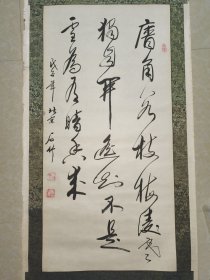 墙角数枝梅凌寒
獨自開遥知不是
雪為有暗香来
戊子年